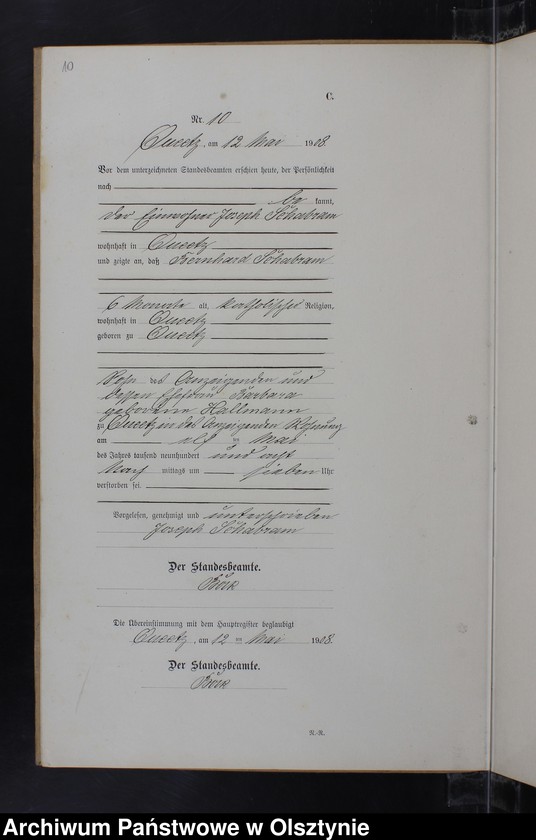 10
C.
Nr. 10
Queetz, am 12 Mai 1908.
Vor dem unterzeichneten Standesbeamten erschien heute, der Persönlichkeit
nach
be kannt,
der Einwohner Joseph Schabram
wohnhaft in Queetz
und zeigte an, daß Bernhard Schabram
6 Monate alt, katholischer Religion,
wohnhaft in Queetz
geboren zu Queetz
Sohn des Anzeigenden und
dessen Ehefrau Barbara
geborene Hallmann
zu Queetz in des Anzeigenden Wohnung
am elf ten Mai
des Jahres tausend neunhundert und acht
Nach mittags um sieben Uhr
verstorben sei.
Vorgelesen, genehmigt und unterschrieben
Joseph Schabram
Der Standesbeamte.
Die Übereinstimmung mit dem Hauptregister beglaubigt
Queetz, am 12 ten Mai 1908.
Der Standesbeamte.
N.-R.
Archiwum Państwowe w Olsztynie